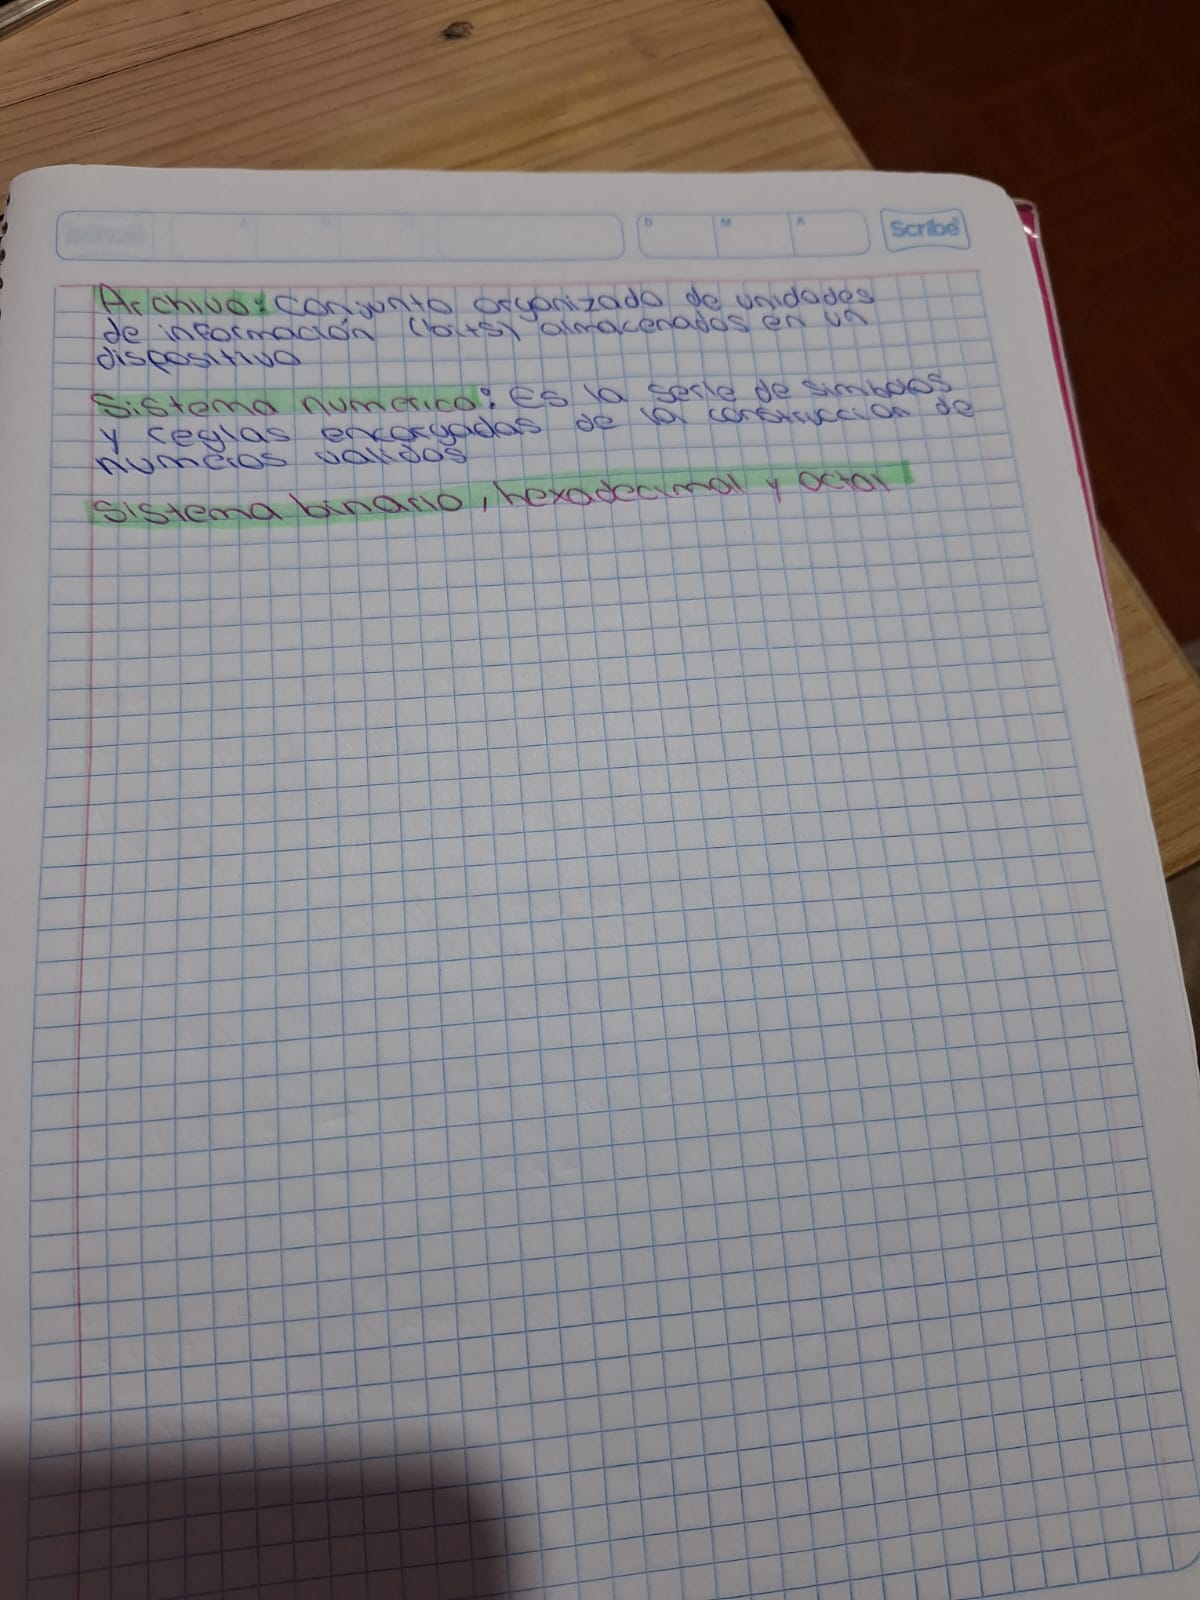 D M A Scribe
Archivo: Conjunto organizado de unidades
de información (bits) almacenados en un
dispositivo
Sistema numerico: Es la serie de simbolos
y reglas encargadas de la construccion de
numeros validos
Sistema binario, hexadecimal y octal